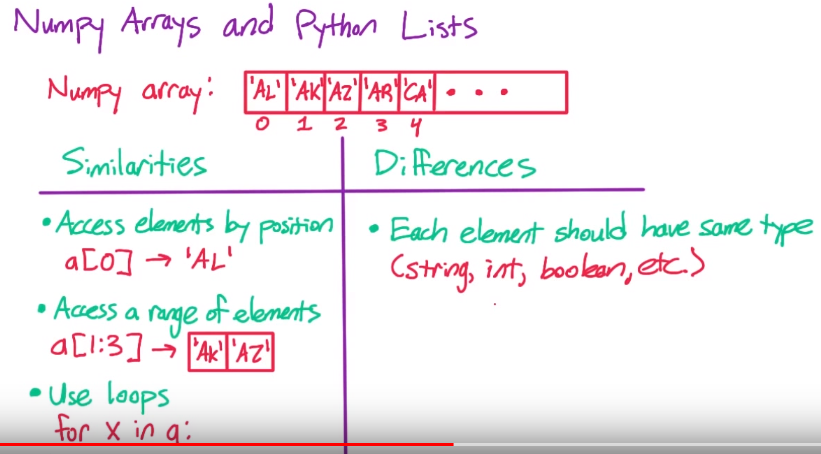 Numpy Arrays and Python Lists
Numpy array: 'AL' 'AK' 'AZ' 'AR' 'CA' • • •
0 1 2 3 4
Similarities
• Access elements by position
a[0] → 'AL'
• Access a range of elements
a[1:3] → 'AK' 'AZ'
• Use loops
for x in a:
Differences
• Each element should have same type
(string, int, boolean, etc.)